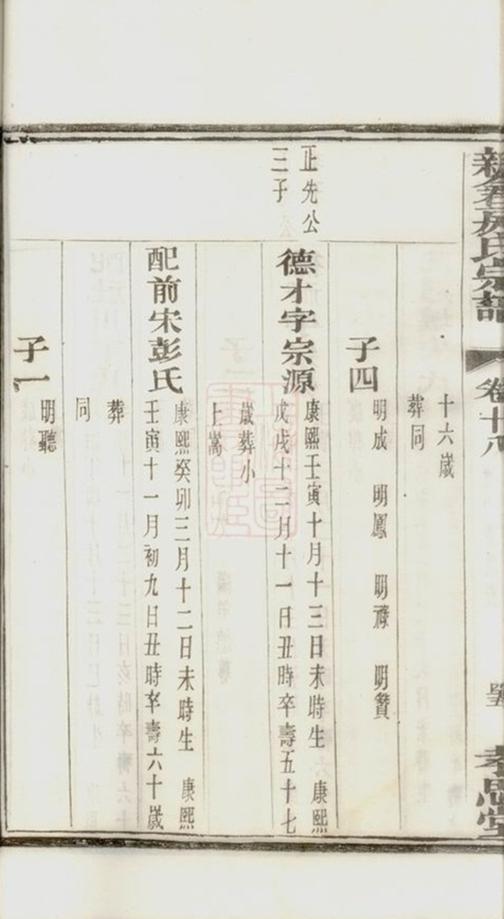 氏宗譜 卷十八 孝思堂
十六歲
葬同
子四
明成 明鳳 明祿 明贊
正先公
三子
德才字宗源
康熙壬寅十月十三日未時生 康熙
戊戌十二月十一日丑時卒壽五十七
歲葬小
上嵩
配前宋彭氏
康熙癸卯三月十二日未時生 康熙
壬寅十一月初九日丑時卒壽六十歲
葬
同
子一
明聽